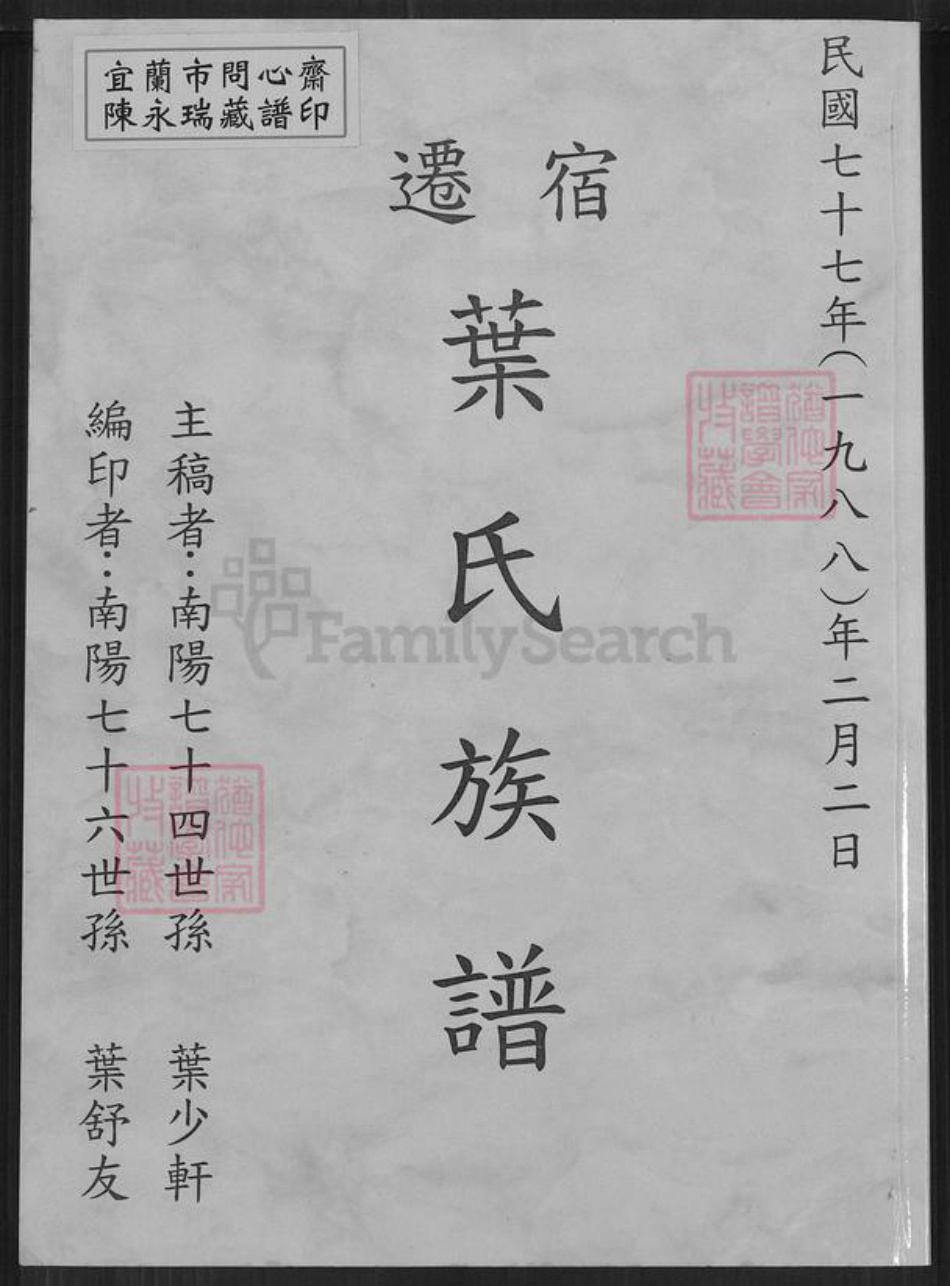 民國七十七年(一九八八)年二月二日
宿遷
葉氏族譜
主稿者：南陽七十四世孫 葉少軒
編印者：南陽七十六世孫 葉舒友
宜蘭市問心齋
陳永瑞藏譜印
FamilySearch